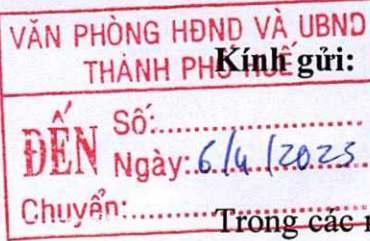 VĂN PHÒNG HĐND VÀ UBND
THÀNH PHỐ HUẾ
Kính gửi:
ĐẾN
Số:
Ngày: 6/4/2023
Chuyển:
Trong các